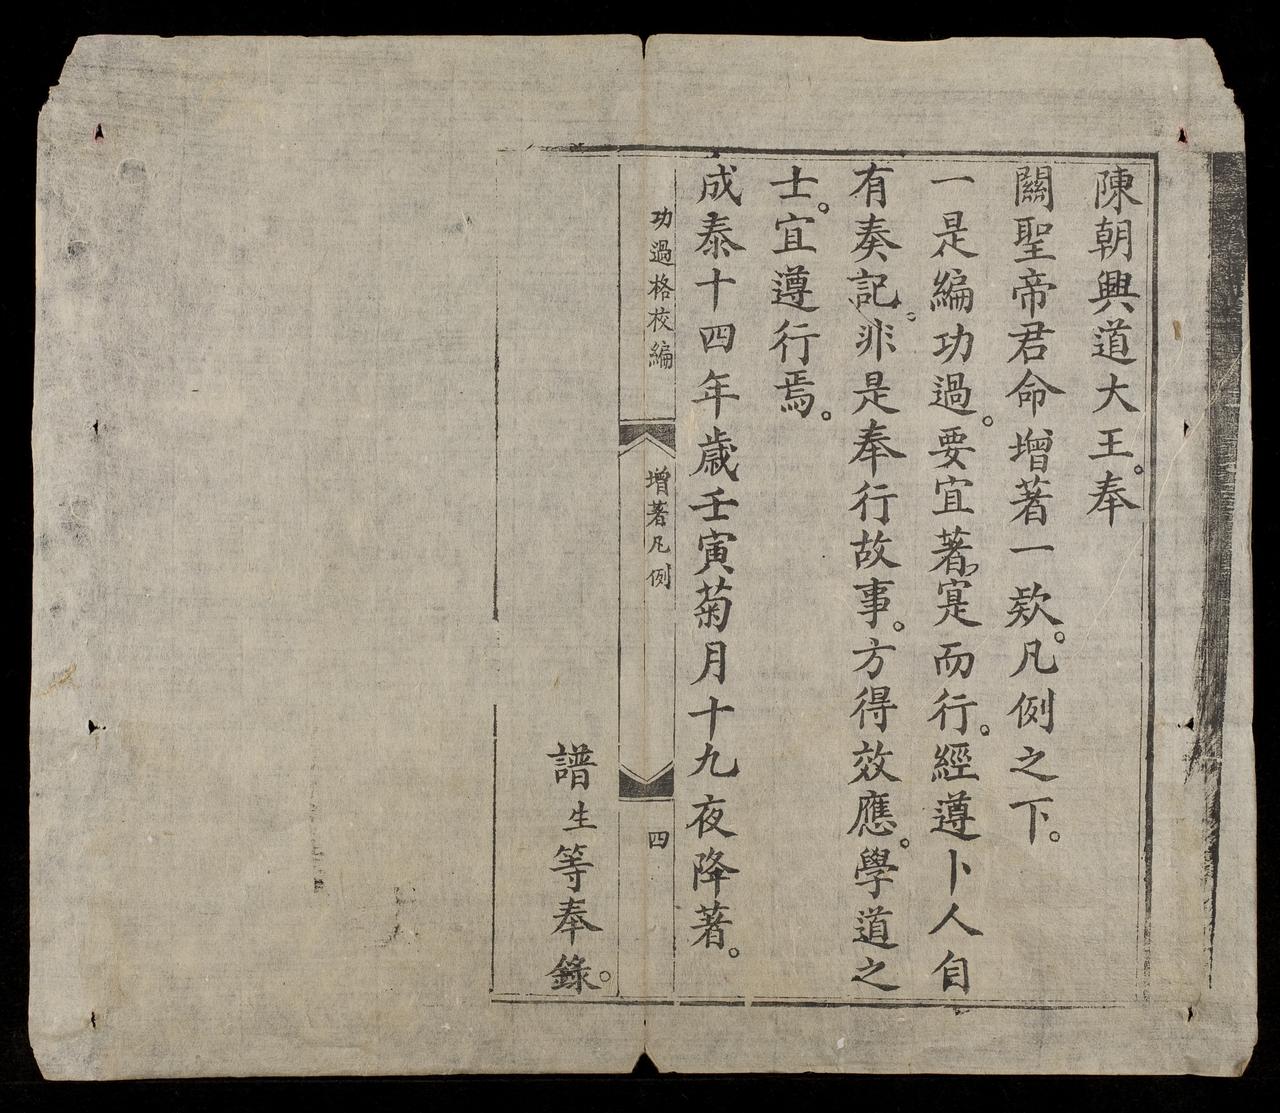 陳朝興道大王。奉
關聖帝君命增著一欵。凡例之下。
一是編功過。要宜著寔而行。經遵卜人自
有奏記。非是奉行故事。方得效應。學道之
士。宜遵行焉。
成泰十四年歲壬寅菊月十九夜降著。
功過格校編 增著凡例 四
譜生等奉錄。